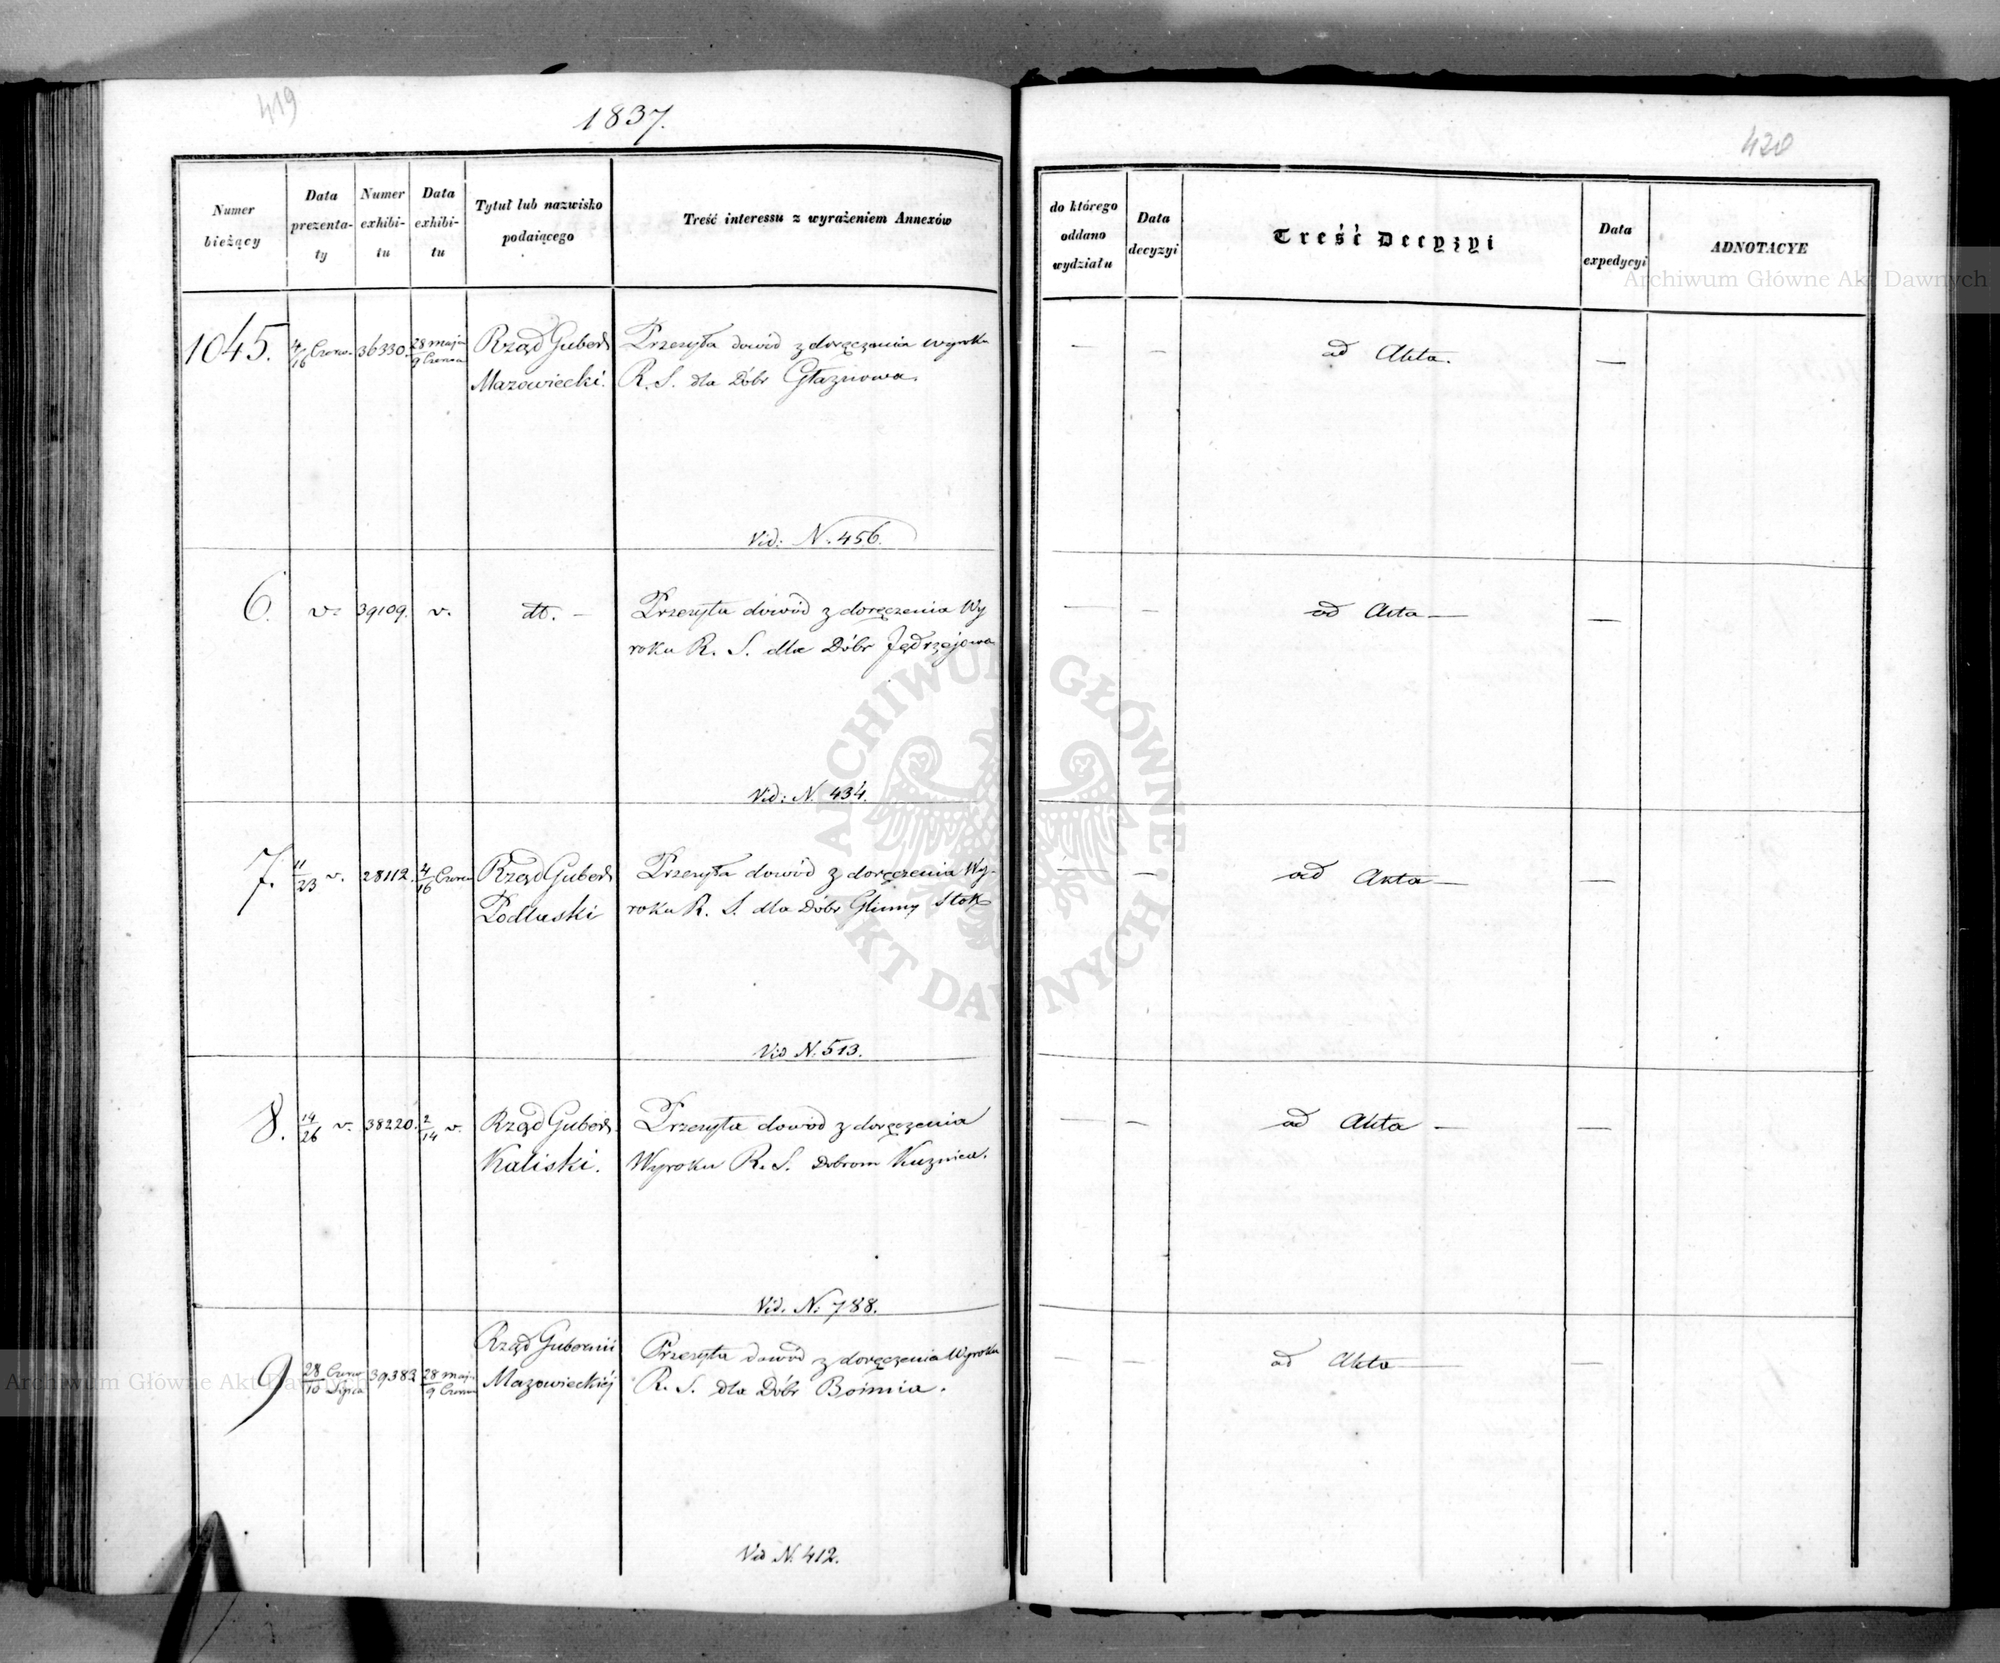 419
1837.
420
Numer bieżący
Data prezenta-ty
Numer exhibi-tu
Data exhibi-tu
Tytuł lub nazwisko podaiącego
Treść interessu z wyrażeniem Annexów
do którego oddano wydziału
Data decyzyi
Treść Decyzyi
Data expedycyi
ADNOTACYE
Archiwum Główne Akt Dawnych
1045. 4/16 Czerw. 36330. 28 maja/9 Czerwca Rząd Gubern Przesyła dowód z doręczenia wyroku — — ad Akta. —
Mazowiecki. R. S. dla Dóbr Głaznowa.
Vid: N. 456.
6. v. 39109. v. dt. — Przesyła dowód z doręczenia Wy — — ad Akta — —
roku R. S. dla Dóbr Jędrzejowa
Vid: N. 434.
7. 11/23 v. 28112. 4/16 Czerw Rząd Gubern Przesyła dowód z doręczenia Wy- — — ad Akta — —
Podlaski roku R. S. dla Dóbr Gliinny Stok
Vid N. 513.
8. 14/26 v. 38220. 2/14 v. Rząd Gubern. Przesyła dowód z doręczenia — — ad Akta — —
Kaliski. Wyroku R. S. Dobrom Kuznica.
Vid. N: 788.
9 28 Czerw/10 Lipca 39383 28 Maja/9 Czerwc Rząd Gubernii Przesyła dowód z doręczenia Wyroku — — ad Akta — —
Mazowieckiéj R. S. dla Dóbr Boimia.
Vid N. 412.
ARCHIWUM GŁÓWNE AKT DAWNYCH
Archiwum Główne Akt Dawnych